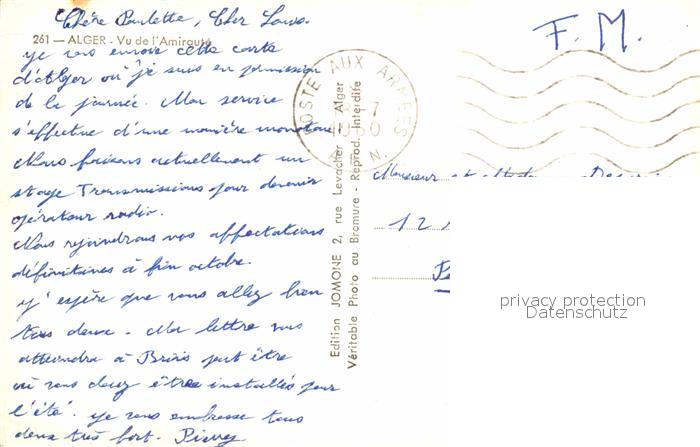 Chère Paulette, Cher
261 — ALGER - Vu de l'Amirauté
Je vous envoie cette carte
d'Alger où je suis en permission
de la journée. Mon service
s'effectue d'une manière monotone
Nous faisons actuellement un
stage Transmissions pour devenir
opérateur radio.
Nous rejoindrons nos affectations
définitives à fin octobre.
J'espère que vous allez bien
tous deux. Ma lettre vous
atteindra à peut être
où vous devez être installés pour
l'été. Je vous embrasse tous
deux très fort. Pierre
Edition JOMONE 2, rue Levacher - Alger
Véritable Photo au Bromure - Reprod. Interdite
POSTE AUX ARMEES
F. M.
Monsieur et
12
privacy protection
Datenschutz